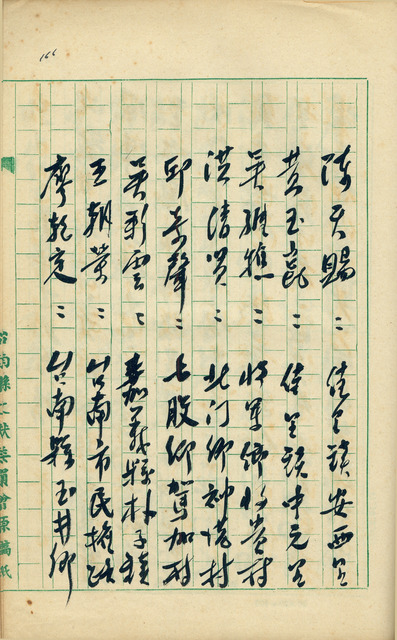 166
陳天賜：：佳里鎮安西里
黃玉崑：：佳里鎮中元里
吳維樵：：將軍鄉將貴村
洪清眾：：北门鄉鯤江村
邱景聲：：七股鄉篤加村
吳新雲：：嘉義縣朴子鎮
王朝榮：：台南市民權路
廖乾定：：台南縣玉井鄉
台南縣文献委員會原稿紙